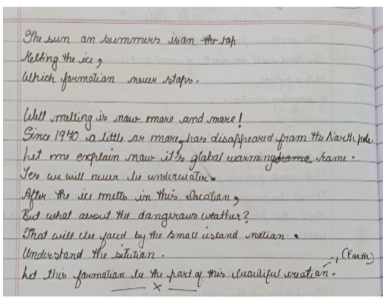 The sun on summers is on the top
Melting the ice,
Which formation never stops.
Well melting is now more and more!
Since 1940 a little or more, has disappeared from the North pole.
Let me explain now it's global warming home.
Yes we will never be underwater.
After the ice melts in this
But what about the dangerous weather?
That will be faced by the small island nation.
Understand the sitution.
(Earth)
Let this formation be the part of this beautiful creation.
x